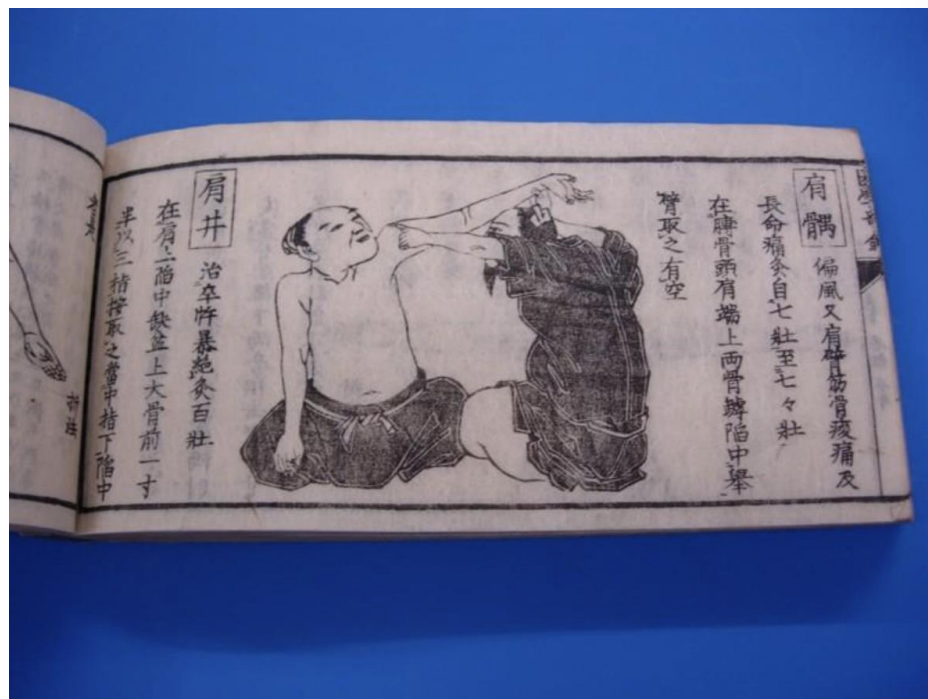 肩髃
偏風又肩臂筋骨痠痛及
長命痛灸自七壯至七々壯
在膊骨頭肩端上両骨罅陷中舉
臂取之有空
肩井
治卒忤暴絶灸百壯
在肩上陷中缺盆上大骨前一寸
半以三指按取之當中指下陷中